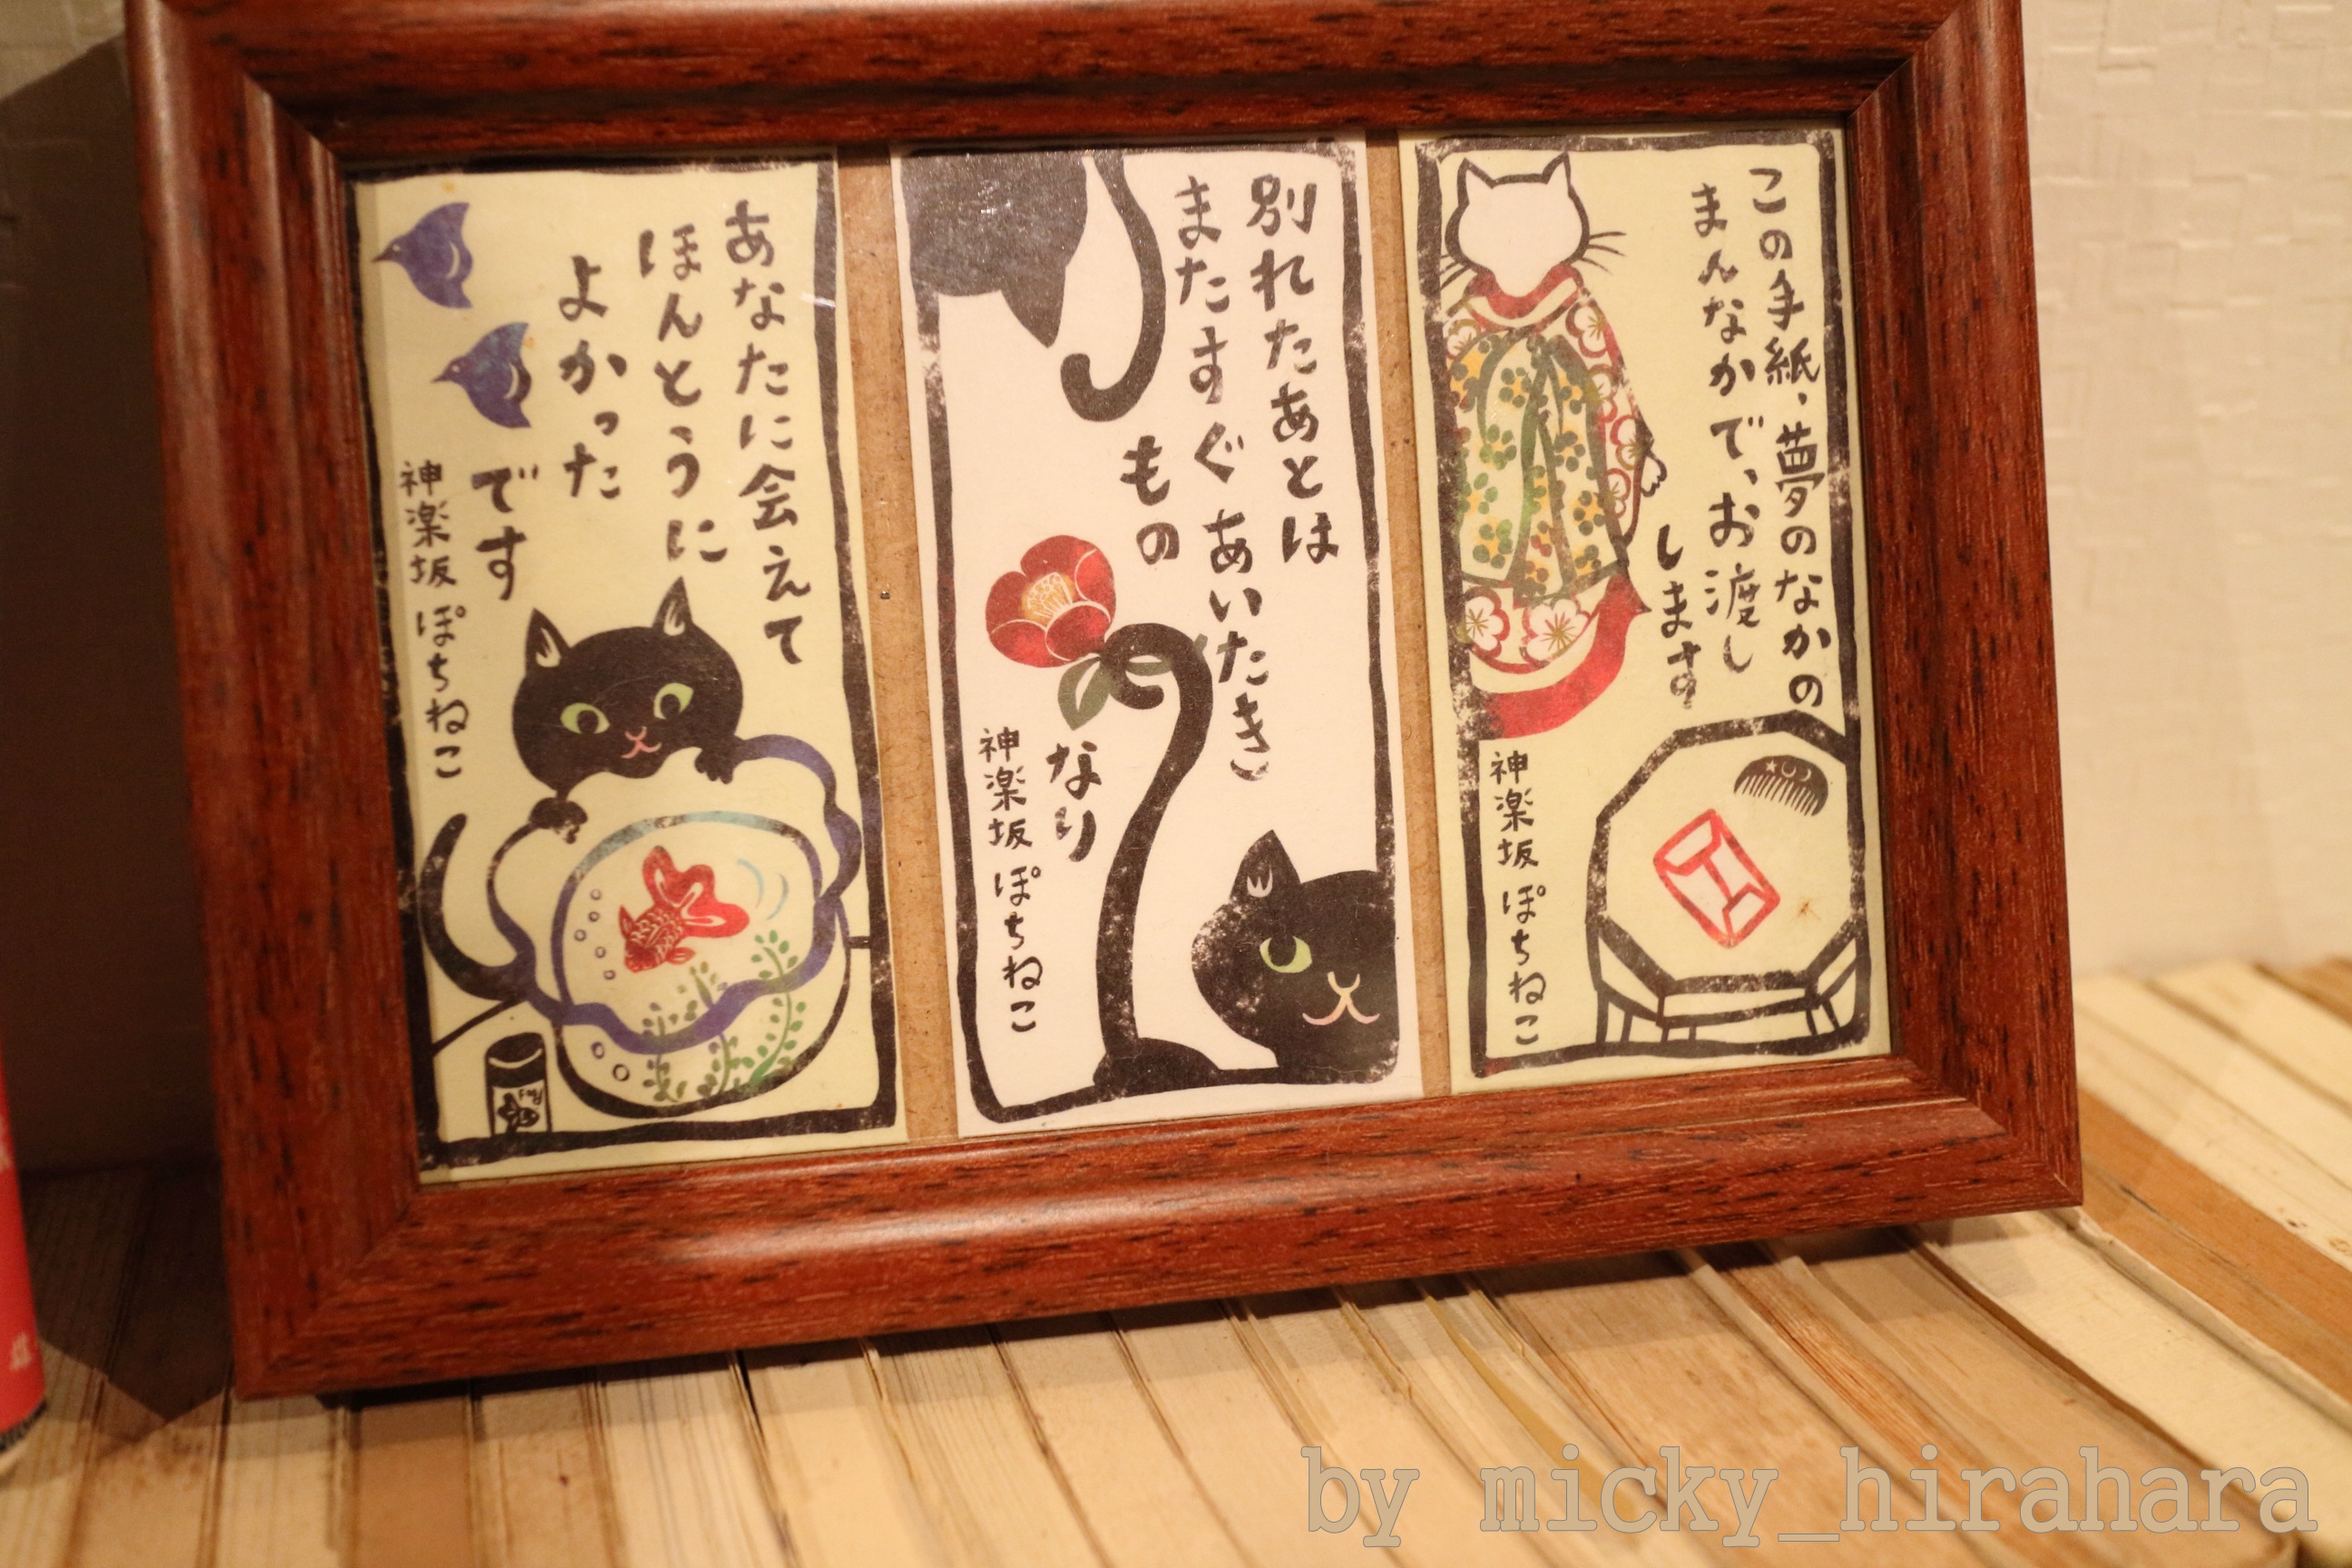 あなたに会えて
ほんとうに
よかった
です
神楽坂 ぽちねこ
別れたあとは
またすぐあいたき
もの
なり
神楽坂 ぽちねこ
この手紙、夢のなかの
まんなかで、お渡し
します
神楽坂 ぽちねこ
by micky_hirahara